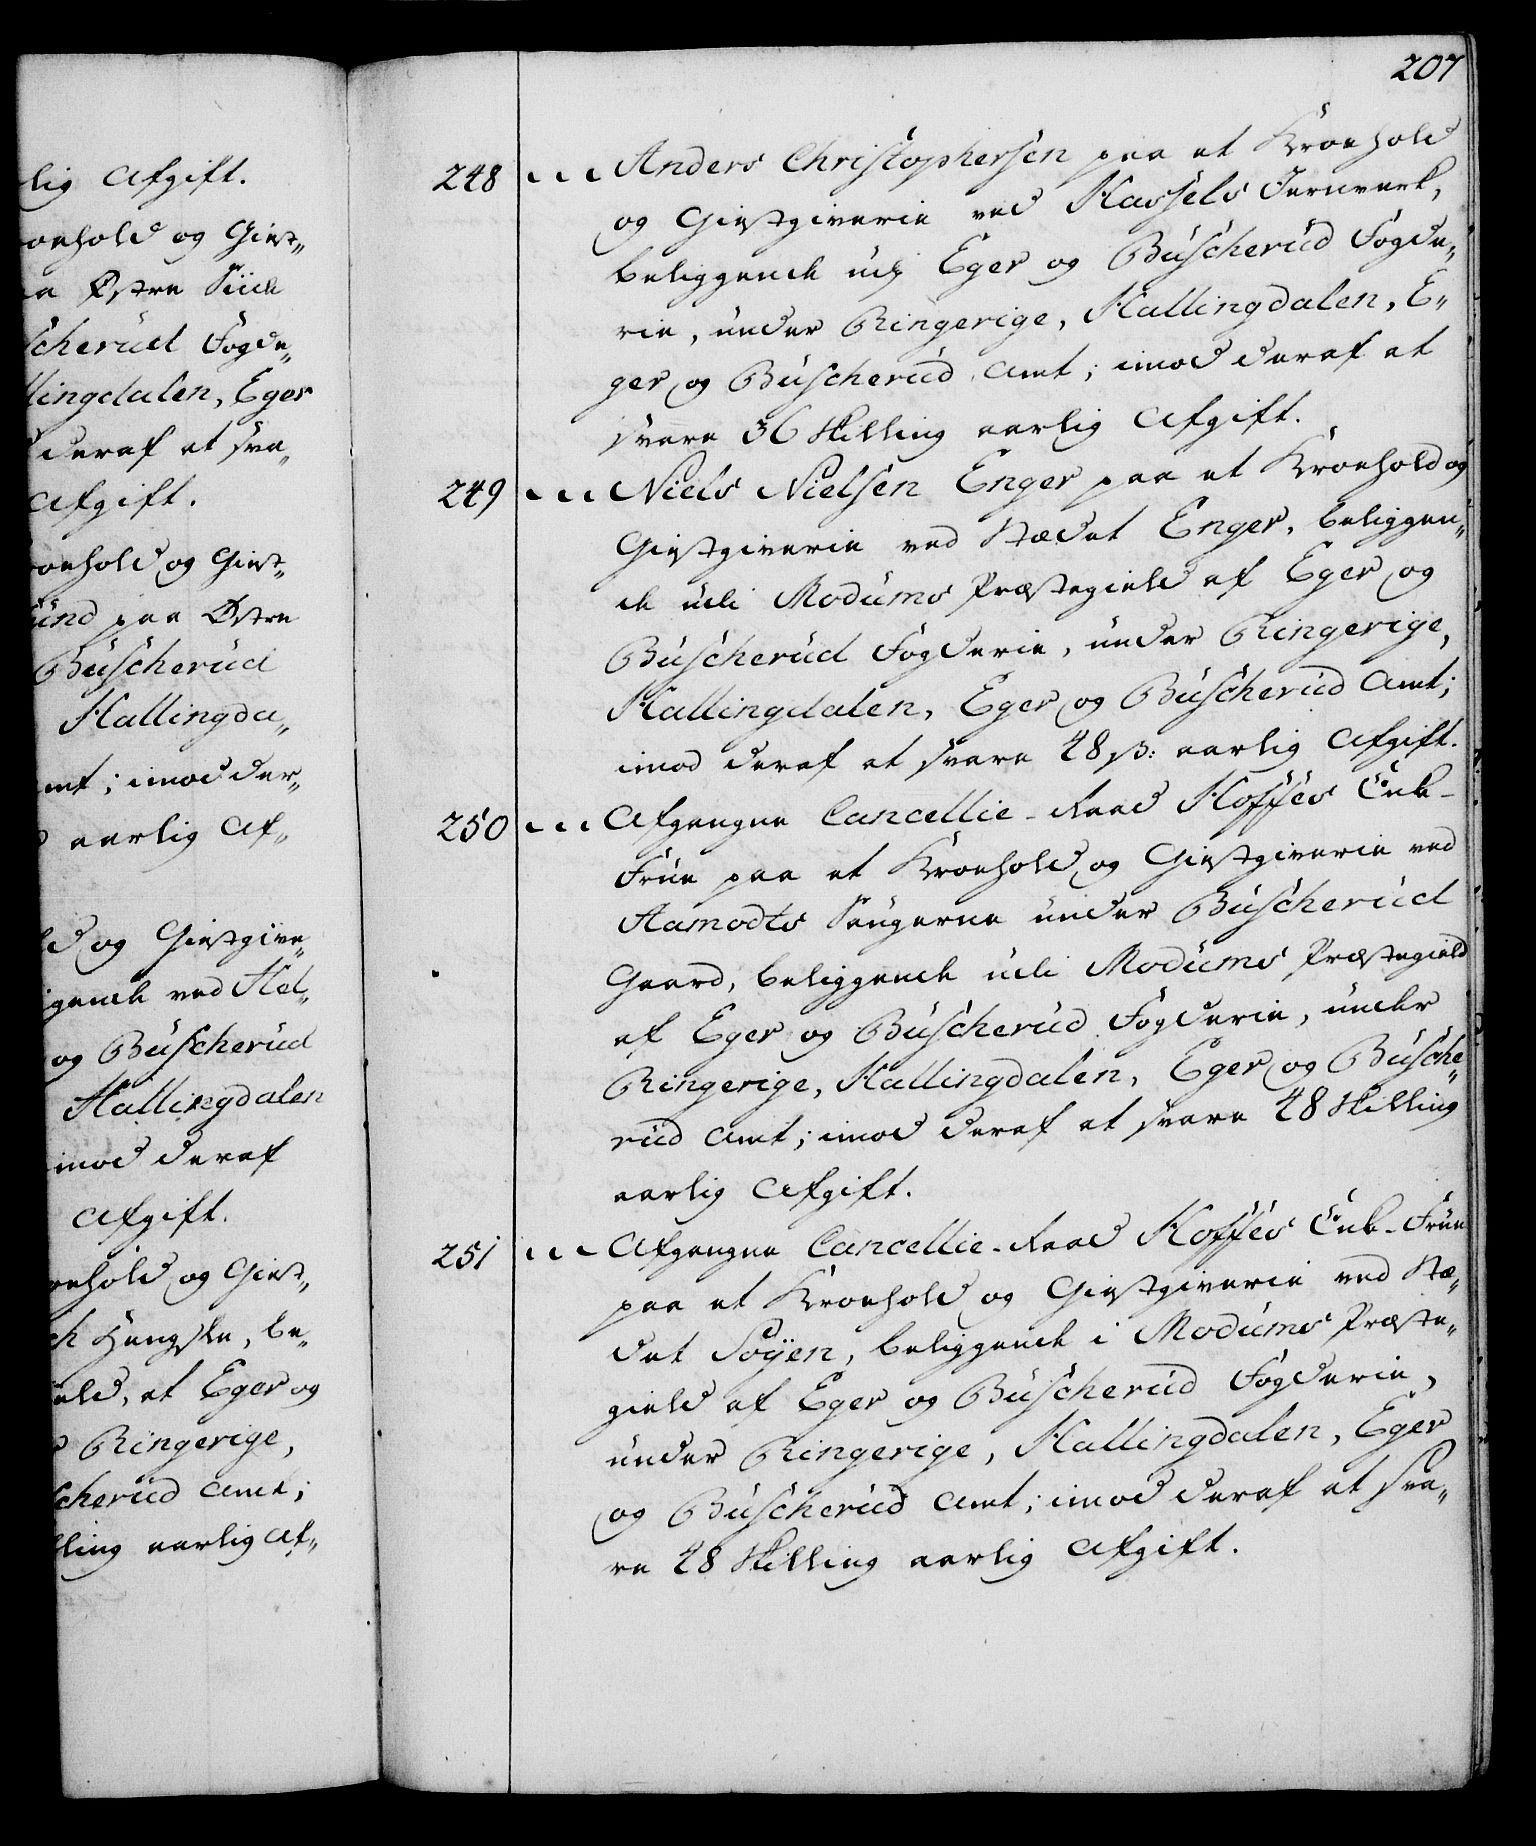 lig Afgift.
oehold og Giest„
a Østre Siide
scherud Fogde„
lingdalen, Eger
deraf at sva„
Afgift.
oehold og Giest„
und paa Østre
Büscherüd
Hallingda„
mt; imod der„
aarlig Af„
d og Giestgive„
gende ved Hel„
og Büscherüd
Hallingdalen
imod deraf
Afgift.
oehold og Giest„
be„
ield, af Eger og
Ringerige,
scherüd Amt;
lling aarlig Af„
207
248 ... Anders Christophersen paa et Kroehold
og Giestgiverie ved Hassels Jernverk,
beliggende udj Eger og Büscherüd Fogde„
rie, ünder Ringerige, Hallingdalen, E„
ger og Büscherüd Amt; imod deraf at
svare 36 Skilling aarlig Afgift.
249 ... Niels Nielsen Enger paa et Kroehold og
Giestgiverie ved Stædet Enger, beliggen„
de udi Modums Præstegield af Eger og
Büscherüd Fogderie, ünder Ringerige,
Hallingdalen, Eger og Büscherüd Amt;
imod deraf at svare 48 ß: aarlig Afgift.
250 ... Afgangne Cancellie-Raad Hoffes Enke-
Früe paa et Kroehold og Giestgiverie ved
Aamodts Saugerne ünder Büscherüd
Gaard, beliggende udi Modüms Præstegield
af Eger og Büscherüd Fogderie, ünder
Ringerige, Hallingdalen, Eger og Büsche„
rüd Amt; imod deraf at svare 48 Skilling
aarlig Afgift.
251 ... Afgangne Cancellie-Raad Hoffes Enke-Früe
paa et Kroehold og Giestgiverie ved Stæ„
det Soÿen, beliggende i Modüms Præste„
gield af Eger og Büscherüd Fogderie,
ünder Ringerige, Hallingdalen, Eger
og Büscherüd Amt; imod deraf at sva„
re 48 Skilling aarlig Afgift.